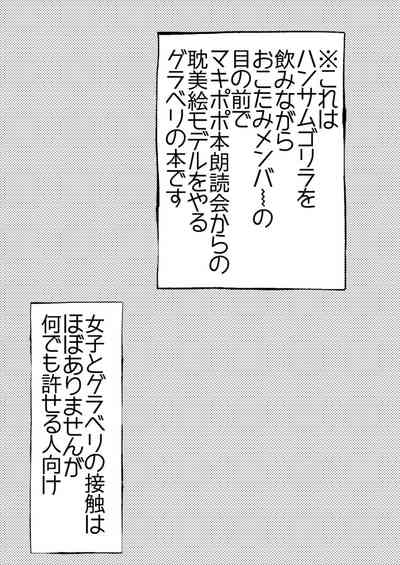 ※これは
ハンサムゴリラを
飲みながら
おこたみメンバ〜の
目の前で
マキポポ本朗読会からの
耽美絵モデルをやる
グラベリの本です
女子とグラベリの接触は
ほぼありませんが
何でも許せる人向け